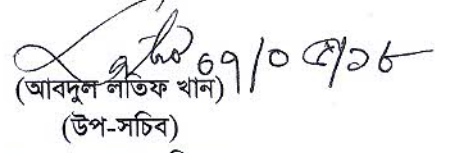 ০৭/০৫/১৮
(আবদুল লতিফ খান)
(উপ-সচিব)